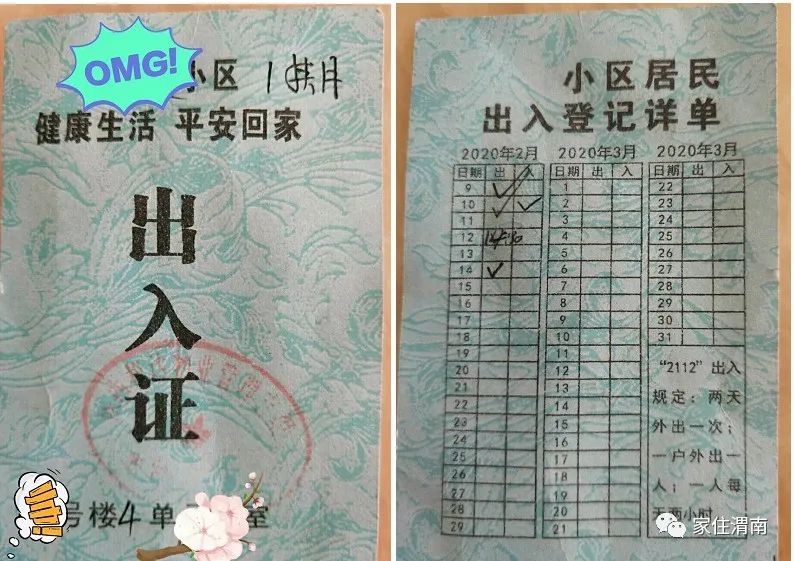 OMG!
小区
健康生活 平安回家
出
入
证
号楼4单 室
小区居民
出入登记详单
2020年2月 2020年3月 2020年3月
日期 出 入 日期 出 入 日期 出 入
9 1 22
10 2 23
11 3 24
12 4 25
13 5 26
14 6 27
15 7 28
16 8 29
17 9 30
18 10 31
19 11
20 12
21 13
22 14
23 15
24 16
25 17
26 18
27 19
28 20
29 21
“2112”出入
规定：两天
外出一次；
一户外出一
人；一人每
天两小时
家住渭南